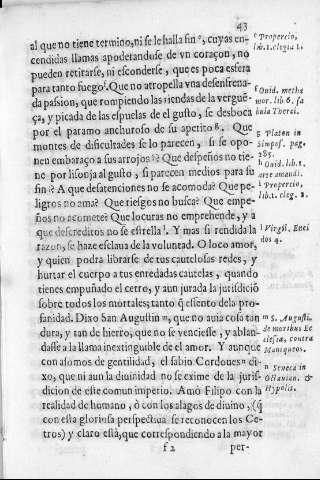 43
al que no tiene termino, ni se le halla fin ᵉ, cuyas en-
cendidas llamas apoderandose de vn coraçon, no
pueden retirarse, ni esconderse, que es poca esfera
para tanto fuego ᶠ. Que no atropella vna desenfrena-
da passion, que rompiendo las riendas de la vergue-
ça, y picada de las espuelas de el gusto, se desboca
por el paramo anchuroso de su apetito ᵍ. Que
montes de dificultades se lo parecen, si se opo-
nen embaraço a sus arrojos? ʰ Que despeños no tie-
ne por lisonja al gusto, si parecen medios para su
fin? ⁱ A que desatenciones no se acomoda? Que pe-
ligros no ama? Que riesgos no busca? Que empe-
ños no acomete? Que locuras no emprehende, y a
que descreditos no se estrella ˡ. Y mas si rendida la
razon, se haze esclaua de la voluntad. O loco amor,
y quien podra librarse de tus cautelosas redes, y
hurtar el cuerpo a tus enredadas cautelas, quando
tienes empuñado el cetro, y aun jurada la jurisdiciõ
sobre todos los mortales; tanto q̃ essento de la pro-
fanidad. Dixo San Augustin ᵐ, que no auia cosa tan
dura, y tan de hierro, que no se venciesse, y ablan-
dasse a la llama inextinguible de el amor. Y aunque
con asomos de gentilidad, el sabio Cordoues ⁿ di-
xo, que ni aun la diuinidad no se exime de la juris-
dicion de este comun imperio. Amò Filipo con la
realidad de humano, ò con los alagos de diuino, (q̃
con esta gloriosa perspectiua se reconocen los Ce-
tros) y claro està, que correspondiendo a la mayor
f 2 per-
ᵉ Propercio,
lib. 1. elegia 1.
ᶠ Ouid. metha
mor. lib. 6. fa
bula Therei.
ᵍ Platon in
Simpos. pag.
285.
ʰ Ouid. lib. 1.
arte amandi.
ⁱ Propercio,
lib. 1. eleg. 2.
ˡ Virgil. Enei
dos 4.
ᵐ S. Augusti.
de moribus Ec
clesiæ, contra
Maniqueos.
ⁿ Seneca in
Octauian. &
Hypolit.